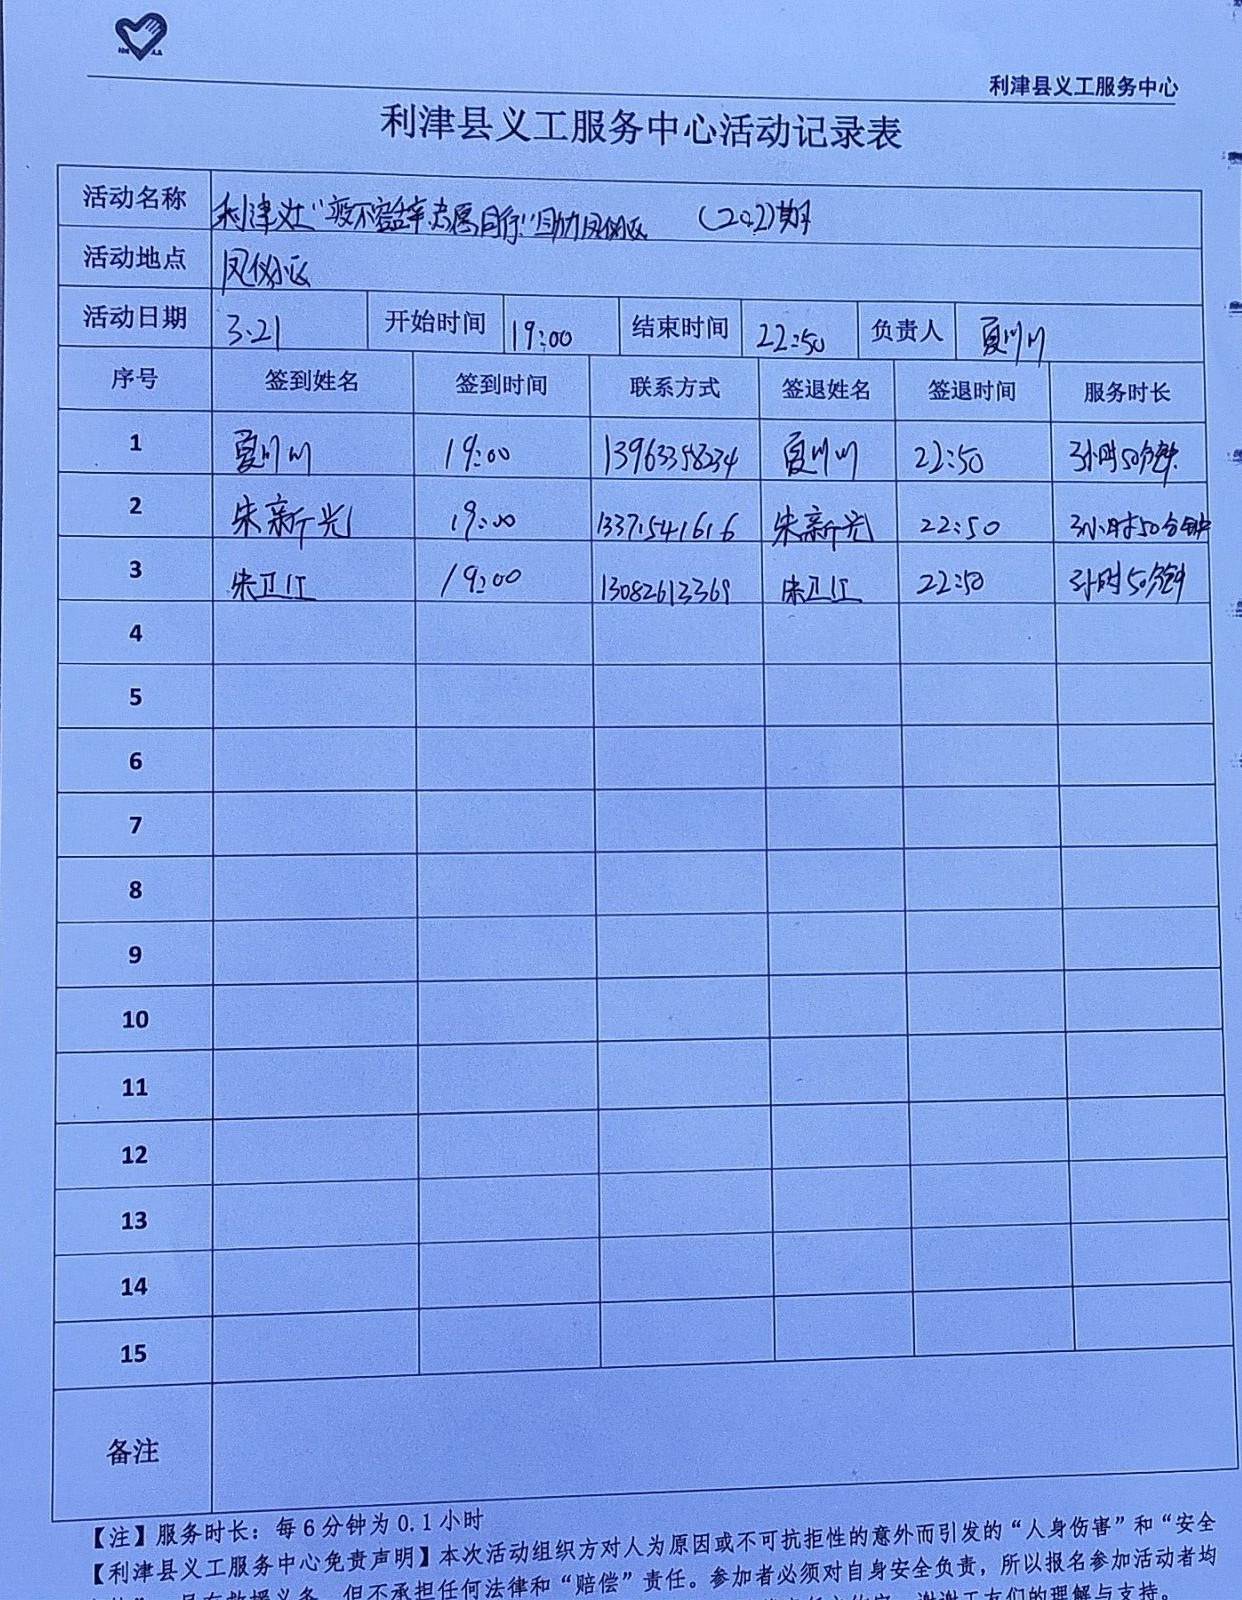 利津县义工服务中心
利津县义工服务中心活动记录表
活动名称 利津义工“疫不容辞 志愿同行”助力凤仪小区 (202)期
活动地点
活动日期 3.21 开始时间 19:00 结束时间 22:50 负责人 夏川川
序号 签到姓名 签到时间 联系方式 签退姓名 签退时间 服务时长
1 夏川川 19:00 13963358234 夏川川 22:50 3小时50分钟
2 朱新光 19:00 13371541616 朱新光 22:50 3小时50分钟
3 朱卫江 19:00 13082613369 朱卫江 22:50 3小时50分钟
4
5
6
7
8
9
10
11
12
13
14
15
备注
【注】服务时长：每6分钟为0.1小时
【利津县义工服务中心免责声明】本次活动组织方对人为原因或不可抗拒性的意外而引发的“人身伤害”和“安全
具有救援义务，但不承担任何法律和“赔偿”责任。参加者必须对自身安全负责，所以报名参加活动者均
谢谢工友们的理解与支持。